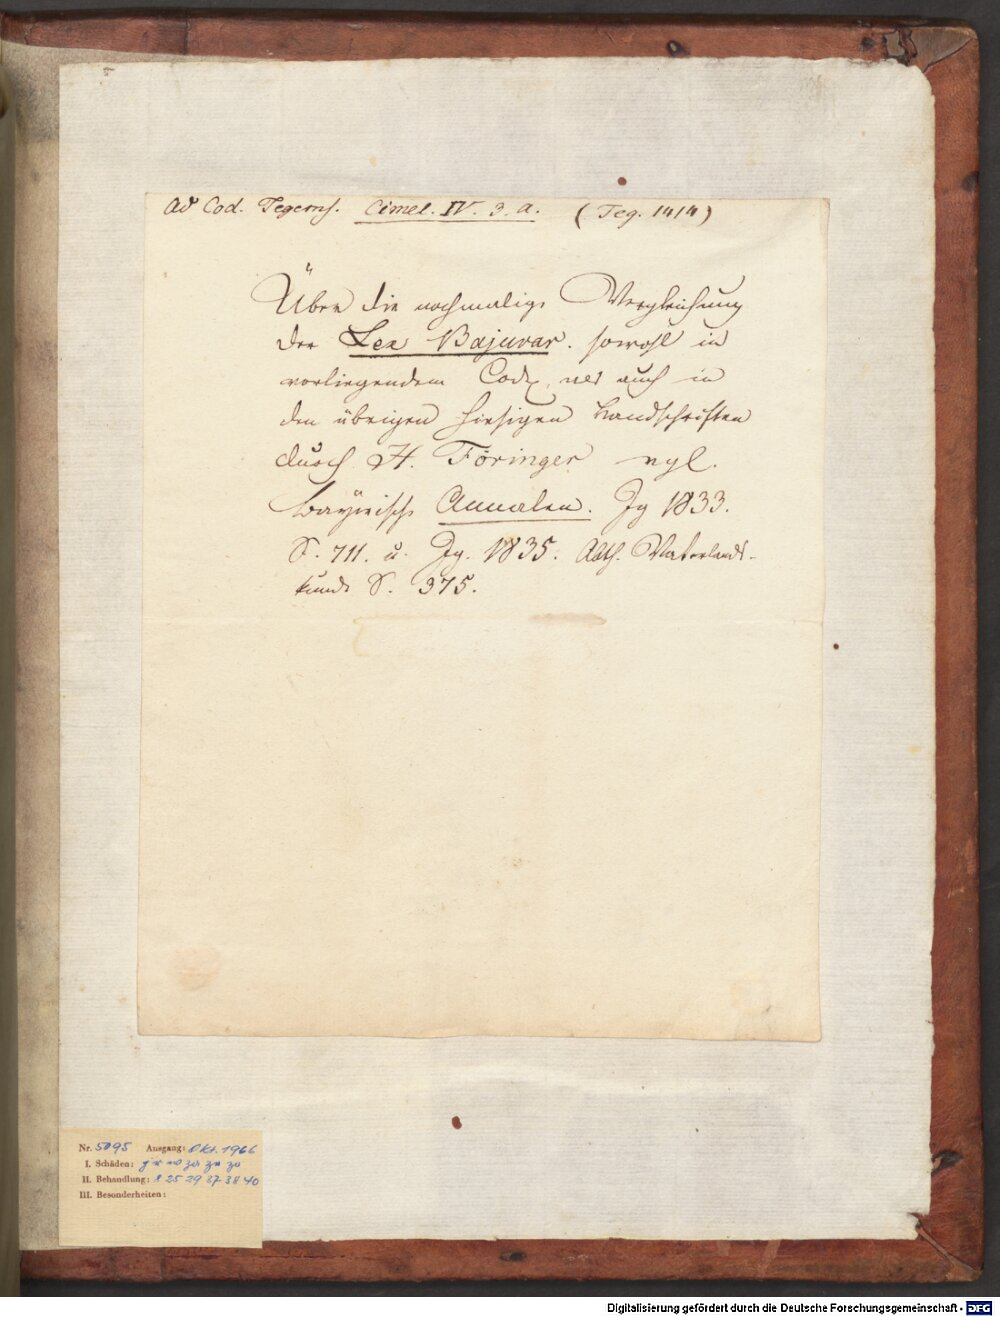 Ad Cod. Tegerns. Cimel. IV. 3. a. (Teg. 1414)
Über die nochmalige Vergleichung
der Lex Bajuvar. sowohl in
vorliegendem Cod., als auch in
den übrigen hiesigen Handschriften
durch H. Föringer vgl.
Bayerische Annalen. Jg 1833.
S. 711. u. Jg. 1835. Abth. Vaterlands-
kunde S. 375.
Nr. 5095 Ausgang: Okt. 1966
I. Schäden:
II. Behandlung: 8 25 29 37 38 40
III. Besonderheiten:
Digitalisierung gefördert durch die Deutsche Forschungsgemeinschaft - DFG